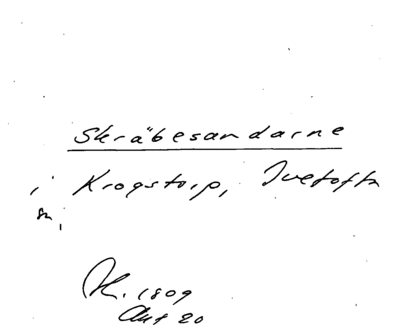 Skräbesandarne
i Krogstorp, Ivetofta
sn,
M. 1809
Aut 20